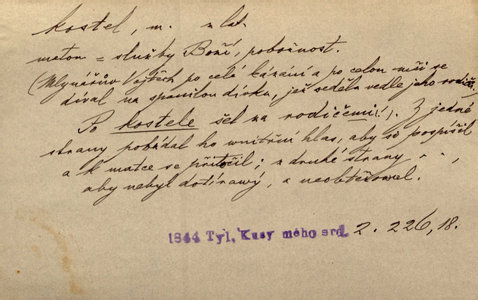 kostel, m. z lat.
meton = služby Boží, pobožnost.
(Mlynářův Vojtěch po celé kázání a po celou mši se
díval na spanilou dívku, jež seděla vedle jeho rodičů
Po kostele šel za rodičemi!). Z jedné
strany pobádal ho vnitřní hlas, aby si pospíšil
a k matce se přitočil; z druhé strany - - ,
aby nebyl dotíravý, a neobtěžoval.
1844 Tyl, Kusy mého srd. 2. 226, 18.